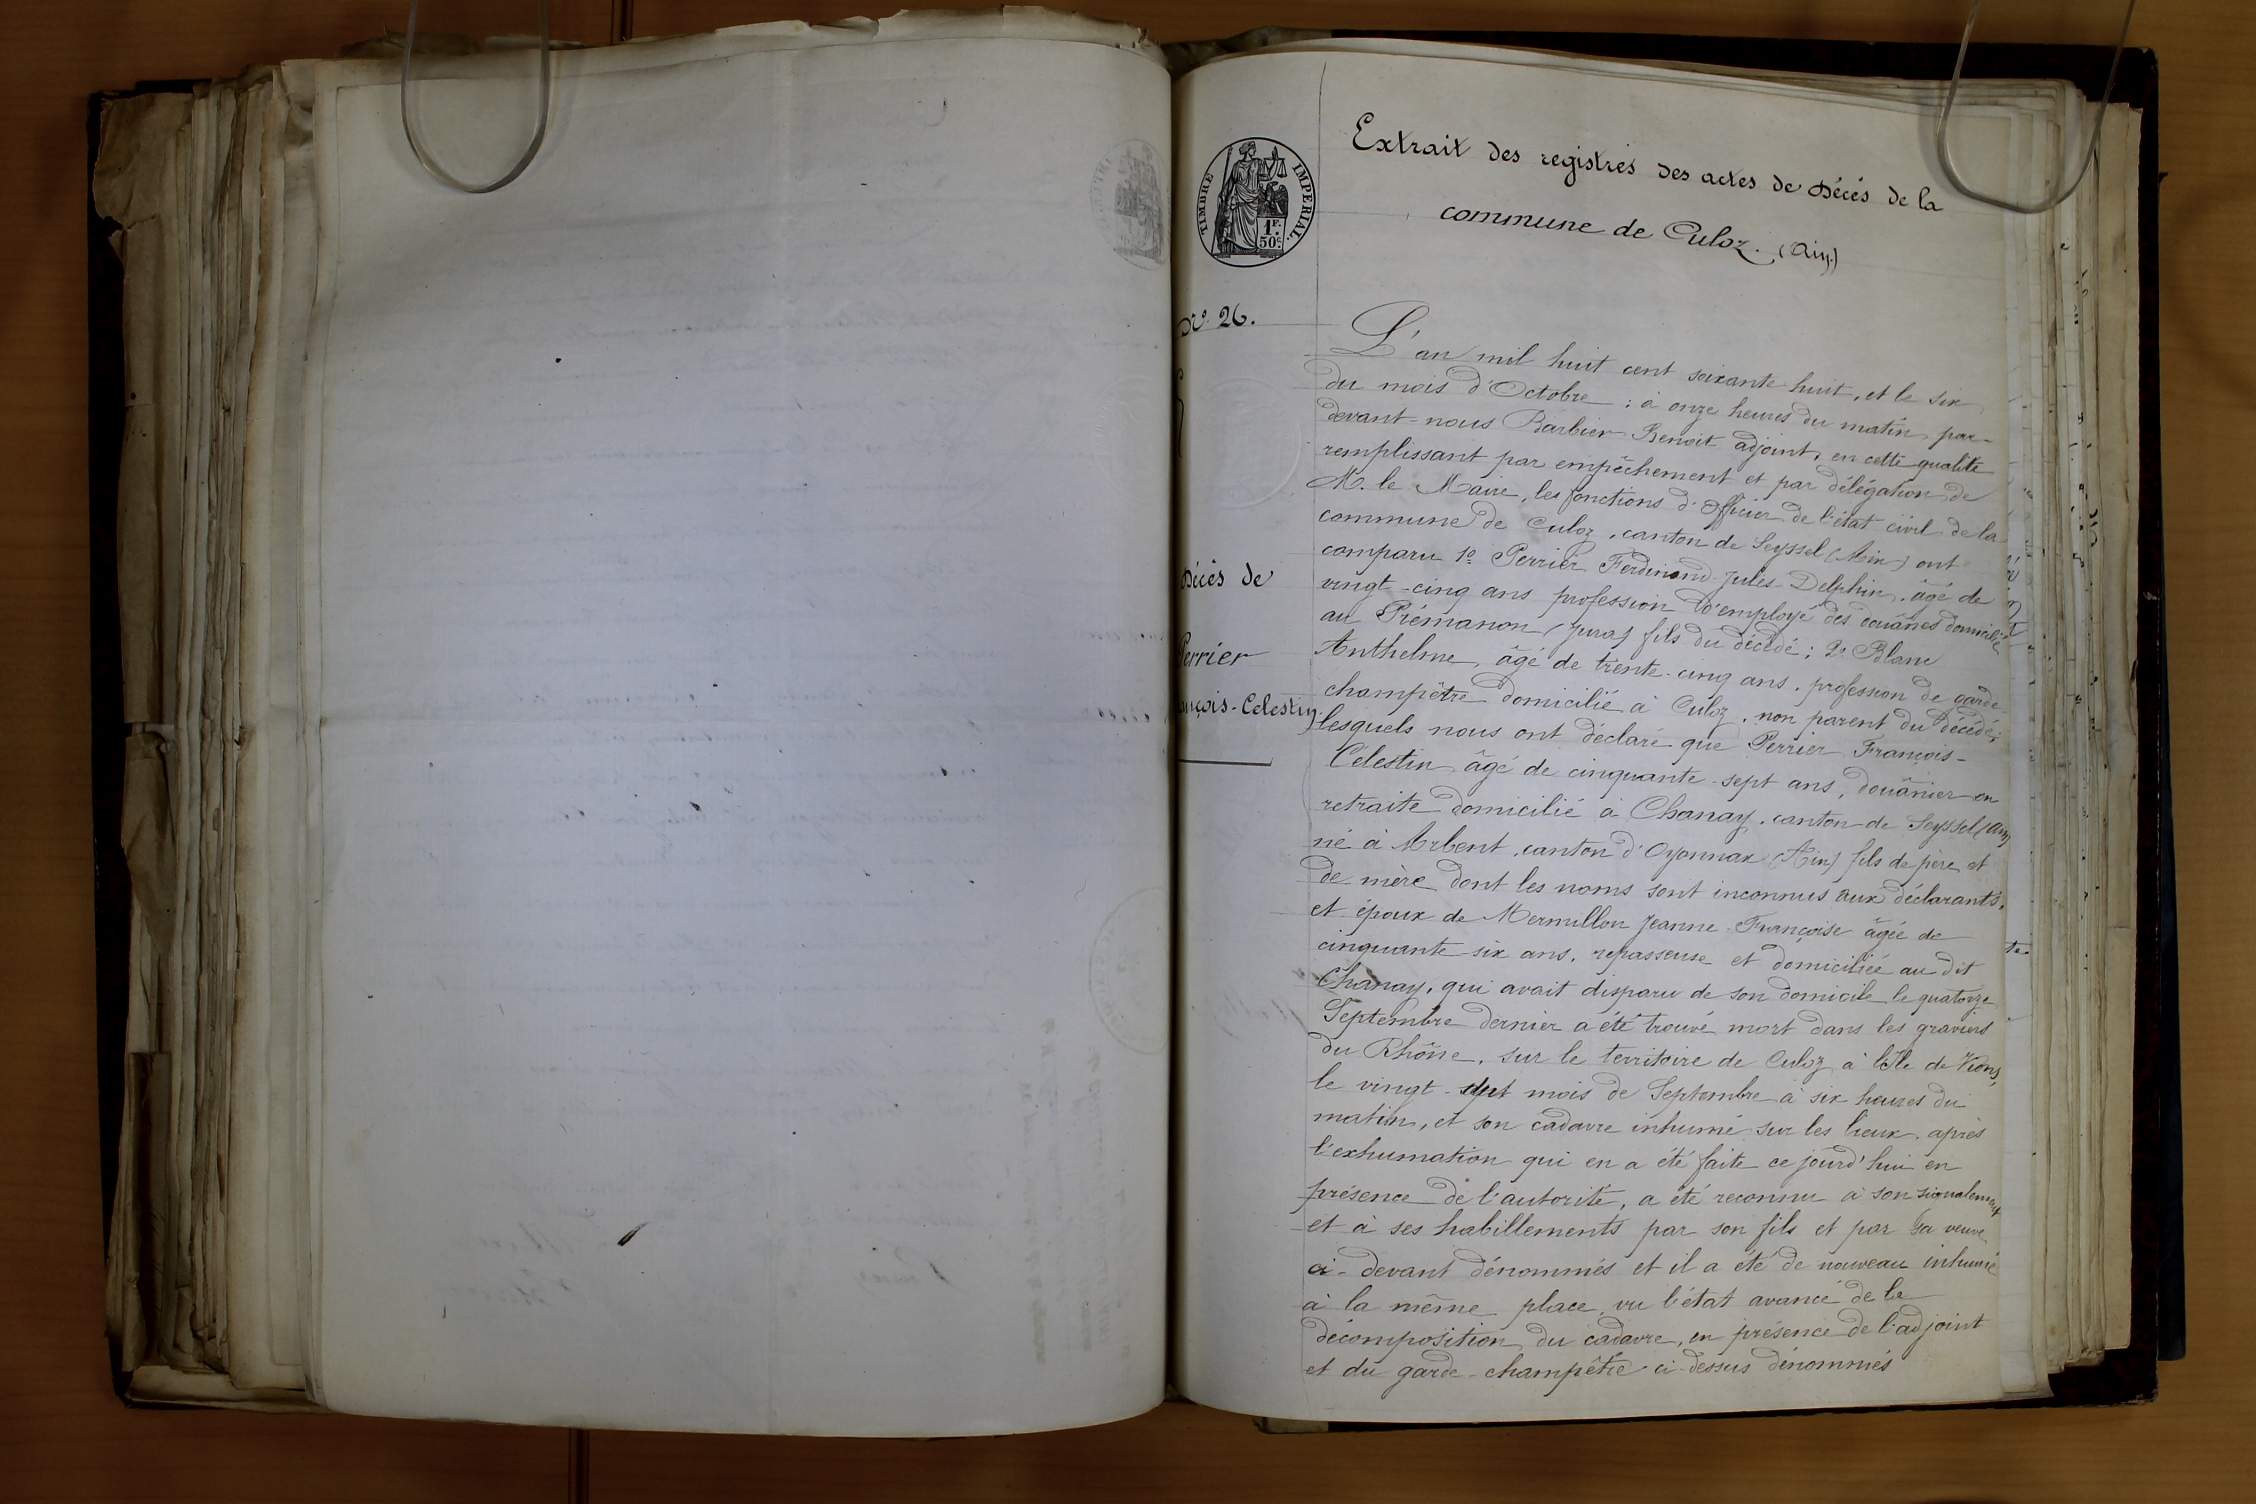 TIMBRE IMPERIAL.
1F.
50c
Extrait des registres des actes de décès de la
commune de Culoz. (Ain)
No. 26.
Décès de
Perrier
François-Celestin
L'an mil huit cent soixante huit, et le six
du mois d'Octobre ; à onze heures du matin par-
devant-nous Barbier Benoit adjoint, en cette qualité
remplissant par empêchement et par délégation de
M. le Maire, les fonctions d'Officier de l'état civil de la
commune de Culoz, canton de Seyssel (Ain) ont
comparu 1o Perrier Ferdinand Jules Delphin, âgé de
vingt-cinq ans profession d'employé des douanes domicilié
au Prémanon (Jura) fils du décédé; 2o Blanc
Anthelme, âgé de trente-cinq ans, profession de garde
champêtre domicilié à Culoz, non parent du décédé;
lesquels nous ont déclaré que Perrier François-
Célestin âgé de cinquante-sept ans, douânier en
retraite domicilié à Chanay, canton de Seyssel (Ain)
né à Arbent, canton d'Oyonnax (Ain) fils de père et
de mère dont les noms sont inconnus aux déclarants,
et époux de Mermillon Jeanne-Françoise âgée de
cinquante-six ans, repasseuse et domiciliée au dit
Chanay, qui avait disparu de son domicile le quatorze
Septembre dernier a été trouvé mort dans les graviers
du Rhône, sur le territoire de Culoz à l'Ile de Vions,
le vingt mois de Septembre à six heures du
matin, et son cadavre inhumé sur les lieux, après
l'exhumation qui en a été faite ce jourd'hui en
présence de l'autorité, a été reconnu à son signalement
et à ses habillements par son fils et par sa veuve
ci-devant dénommés et il a été de nouveau inhumé
à la même place, vu l'état avancé de la
décomposition du cadavre, en présence de l'adjoint
et du garde-champêtre ci-dessus dénommés